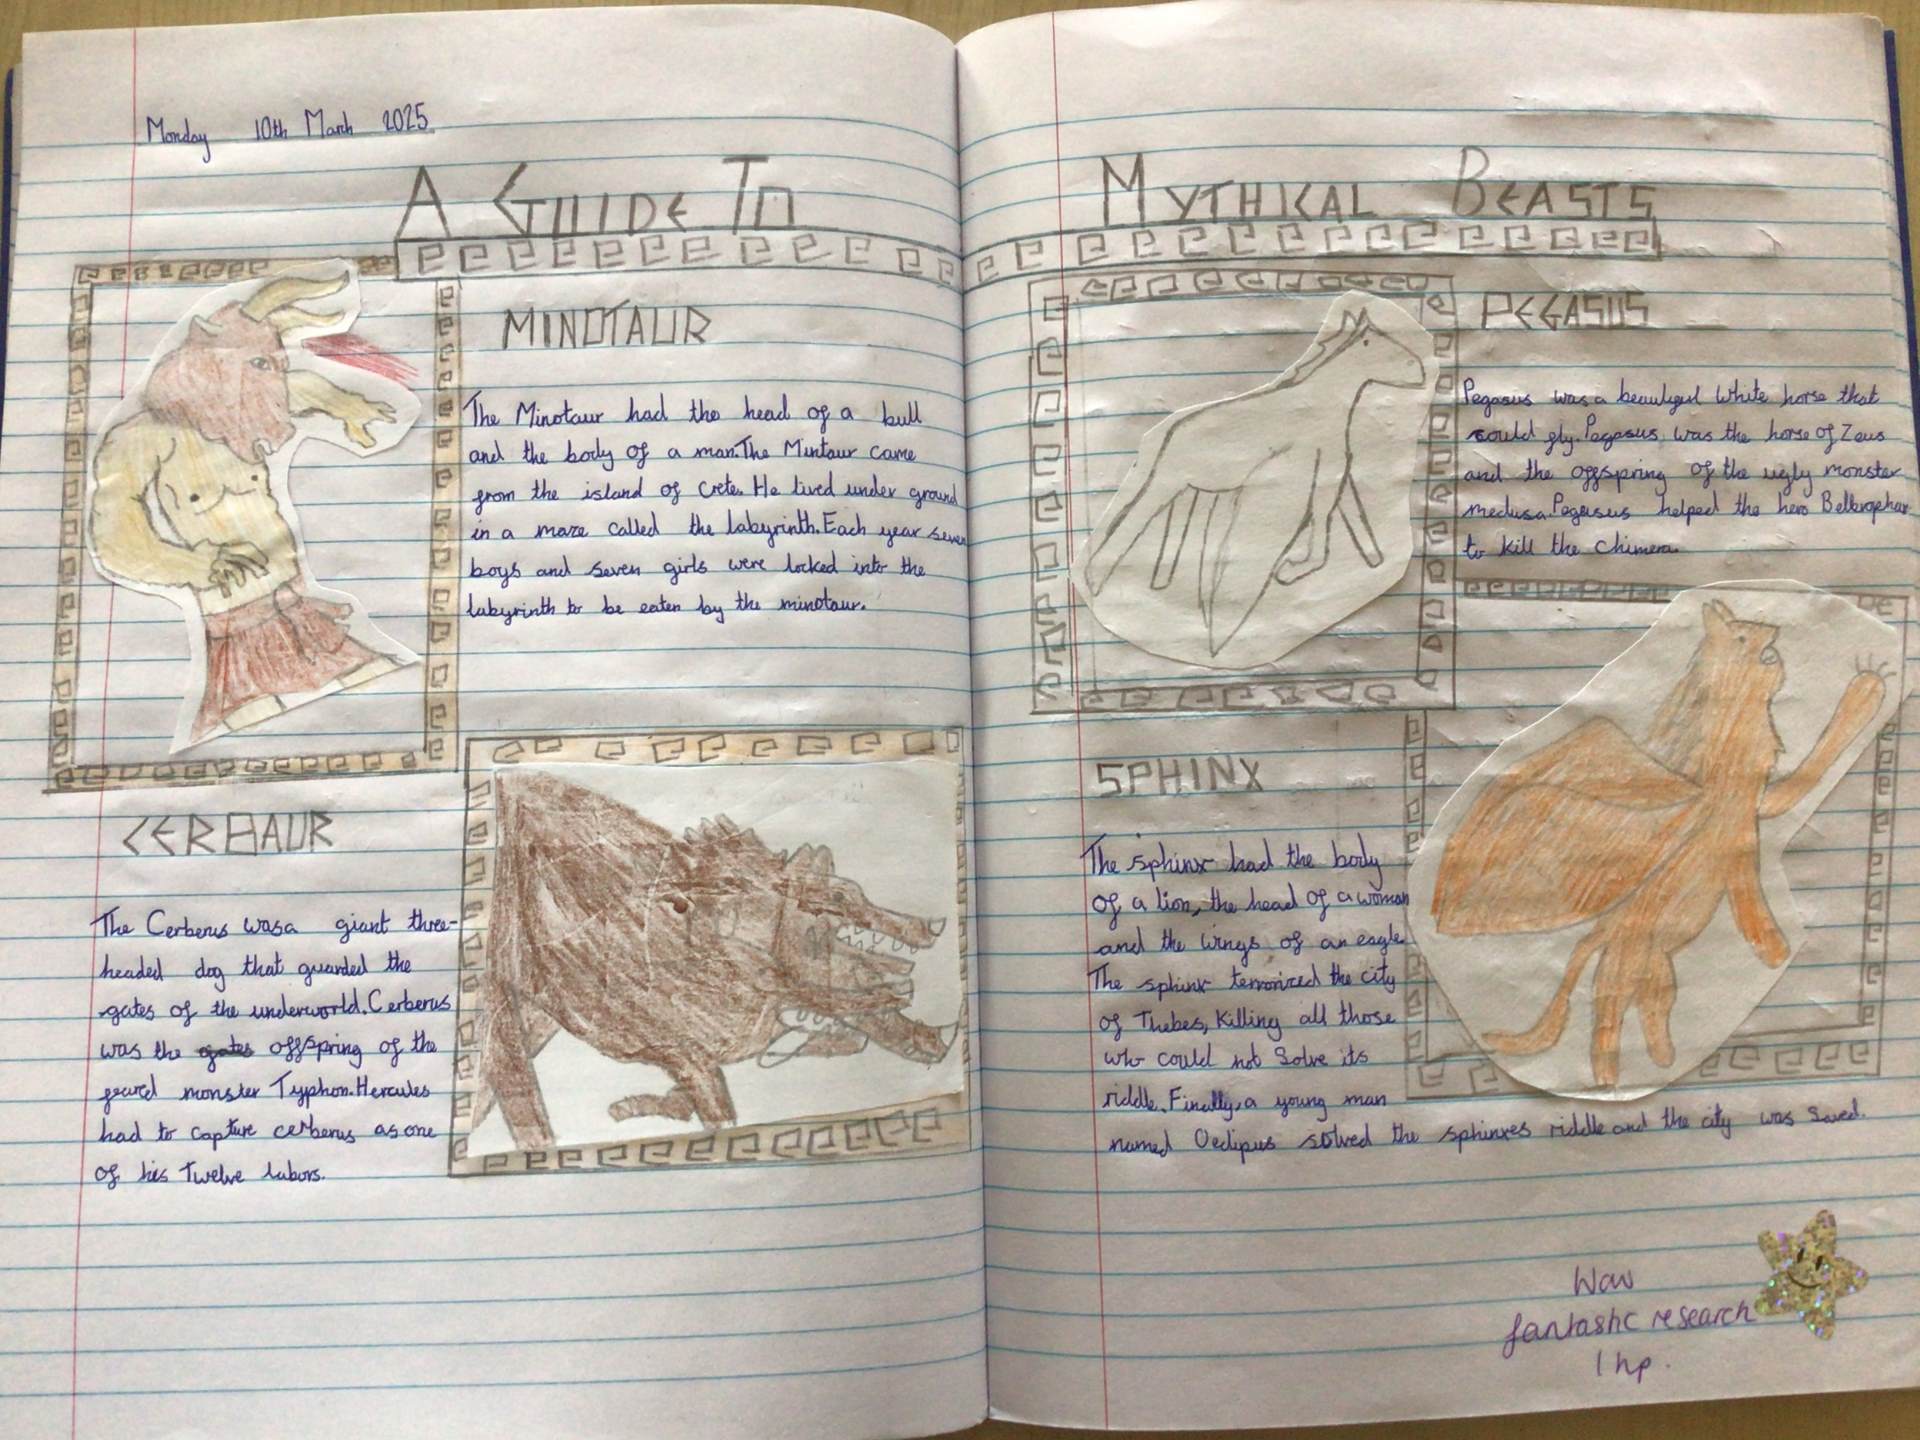 Monday 10th March 2025
A GUIDE TO MYTHICAL BEASTS
MINOTAUR
The Minotaur had the head of a bull
and the body of a man.The Mintaur came
from the island of Crete. He lived under ground
in a maze called the labyrinth.Each year seven
boys and seven girls were locked into the
labyrinth to be eaten by the minotaur.
CERBAUR
The Cerberus was a giant three-
headed dog that guarded the
gates of the underworld.Cerberus
was the gates offspring of the
feared monster Typhon.Hercules
had to capture cerberus as one
of his Twelve labors.
PEGASUS
Pegasus was a beautiful White horse that
could fly.Pegasus was the horse of Zeus
and the offspring of the ugly monster
medusa.Pegasus helped the hero Bellerophon
to kill the chimera.
SPHINX
The sphinx had the body
of a lion, the head of a woman
and the wings of an eagle
The sphinx terrorized the city
of Thebes, Killing all those
who could not Solve its
riddle. Finally, a young man
named Oedipus solved the sphinxes riddle and the city was Saved.
Wow
fantastic research
1 hp.